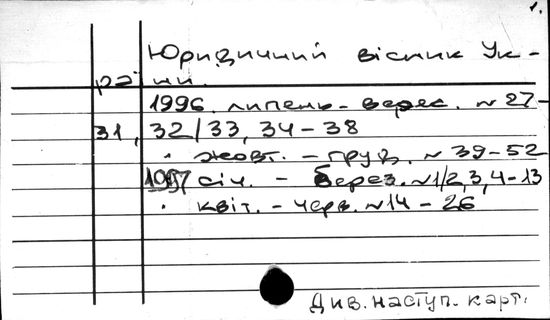 1.
Юридичний вісник Ук-
раїни.
1996. липень - верес. N 27-
31, 32/33, 34-38
" жовт. - груд. N 39-52
1997 січ. - берез. N 1/2, 3, 4-13
" квіт. - черв. N 14-26
Див. наступ. карт.